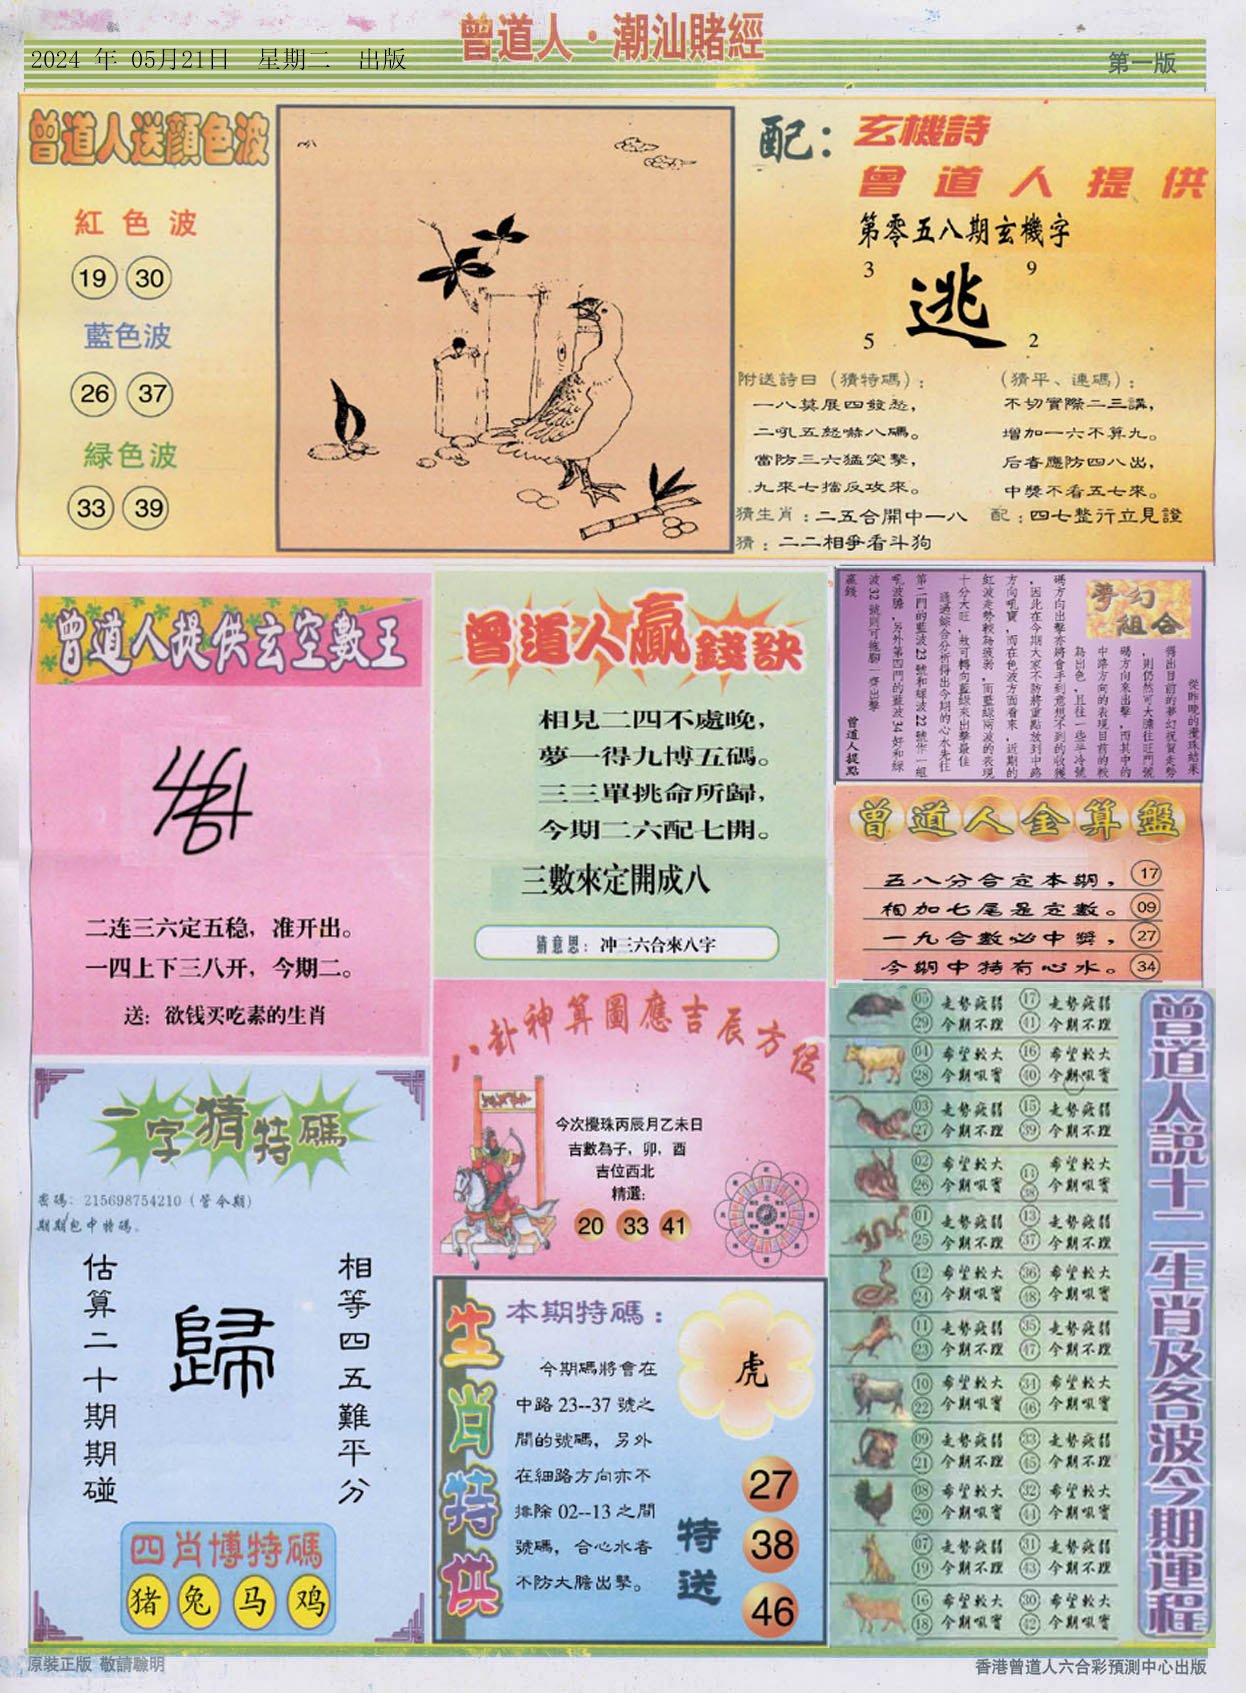 曾道人·潮汕賭經
2024 年 05月21日 星期二 出版
第一版
曾道人送顔色波
紅色波
19 30
藍色波
26 37
緑色波
33 39
配：玄機詩
曾道人提供
第零五八期玄機字
3 9
逃
5 2
附送詩日（猜特碼）：
一八莫展四發愁，
二吼五怒嚇八碼。
當防三六猛突擊，
九來七擋反攻來。
（猜平、連碼）：
不切實際二三講，
增加一六不算九。
后者應防四八出，
中獎不看五七來。
猜生肖：二五合開中一八
配：四七整行立見證
猜：二二相爭看斗狗
曾道人提供玄空數王
二连三六定五稳，准开出。
一四上下三八开，今期二。
送：欲钱买吃素的生肖
曾道人贏錢訣
相見二四不處晚，
夢一得九博五碼。
三三單挑命所歸，
今期二六配七開。
三數來定開成八
猜意思：冲三六合來八字
夢幻組合
從昨晚的攪珠結果
得出目前的夢幻祝賀走勢
，則仍然可大膽往旺門號
碼方向來出擊，而其中的
中路方向的表現目前的較
為出色，且往一些半冷號
碼方向出擊亦將會手到意想不到的收獲
，因此在今期大家不妨將重點放到中路
方向吼寶，而在色波方面看來，近期的
紅波走勢較為疲弱，而藍綠兩波的表現
十分大旺，故可轉向藍綠來出擊最佳
通過綜合分析得出今期的心水先往
第二門的藍波23號和綠波22號作一組
吼波膽，另外第四門的藍波34好和綠
波32號則可拖腳一齊出擊
贏錢
曾道人提點
曾道人金算盤
五八分合定本期， 17
相加七尾是定數。 09
一九合數必中獎， 27
今期中特有心水。 34
八卦神算圖應吉辰方位
今次攪珠丙辰月乙未日
吉數為子，卯，酉
吉位西北
精選：
20 33 41
一字猜特碼
密碼：215698754210（管今期）
期期包中特碼。
相等四五難平分
歸
估算二十期期碰
四肖博特碼
猪 兔 马 鸡
生肖特供
本期特碼：
今期碼將會在
中路 23--37 號之
間的號碼，另外
在細路方向亦不
排除 02--13 之間
號碼，合心水者
不防大膽出擊。
虎
特送
27
38
46
曾道人説十二生肖及各波今期運程
05 走勢疲弱 17 走勢疲弱
29 今期不理 41 今期不理
04 希望較大 16 希望較大
28 今期吼寶 40 今期吼寶
03 走勢疲弱 15 走勢疲弱
27 今期不理 39 今期不理
02 希望較大 14 希望較大
26 今期吼寶 38 今期吼寶
01 走勢疲弱 13 走勢疲弱
25 今期不理 37 今期不理
12 希望較大 36 希望較大
24 今期吼寶 48 今期吼寶
11 走勢疲弱 35 走勢疲弱
23 今期不理 47 今期不理
10 希望較大 34 希望較大
22 今期吼寶 46 今期吼寶
09 走勢疲弱 33 走勢疲弱
21 今期不理 45 今期不理
08 希望較大 32 希望較大
20 今期吼寶 44 今期吼寶
07 走勢疲弱 31 走勢疲弱
19 今期不理 43 今期不理
16 希望較大 30 希望較大
18 今期吼寶 42 今期吼寶
原裝正版 敬請聰明
香港曾道人六合彩預測中心出版